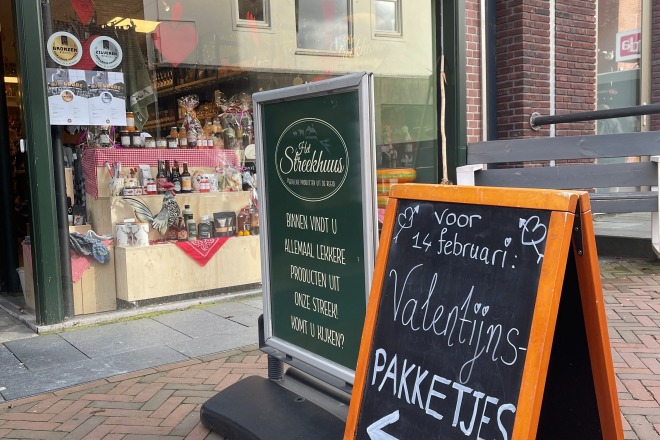 BRONZEN
ZILVEREN
Het
Streekhuus
BINNEN VINDT U
ALLEMAAL LEKKERE
PRODUCTEN UIT
ONZE STREEK!
KOMT U KIJKEN?
voor
14 februari:
Valentijns-
PAKKETJES